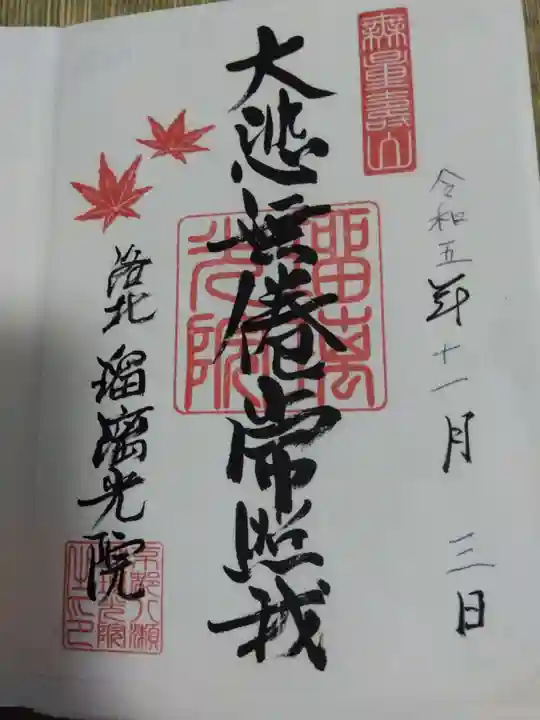 無量壽山
令和五年十一月三日
大悲無倦常照我
瑠璃光院
洛北 瑠璃光院
京都八瀬瑠璃光院之印